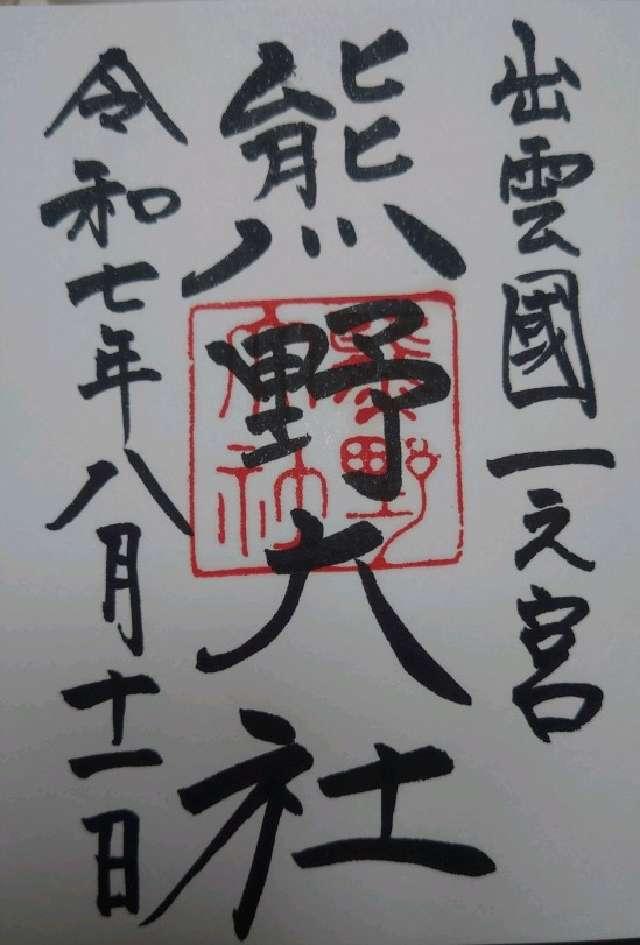 出雲國一之宮
熊野大社
熊野大社
令和七年八月十一日